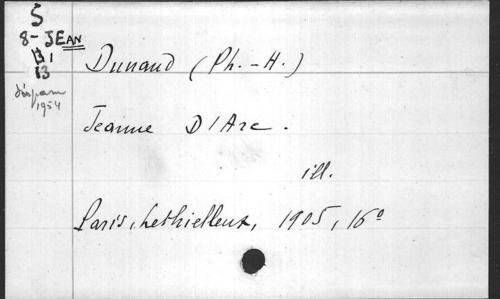 S
8- JEAN
B1
13
disparu
1954
Dunand (Ph. - H.)
Jeanne D'Arc.
ill.
Paris, Lethielleux, 1905, 16°